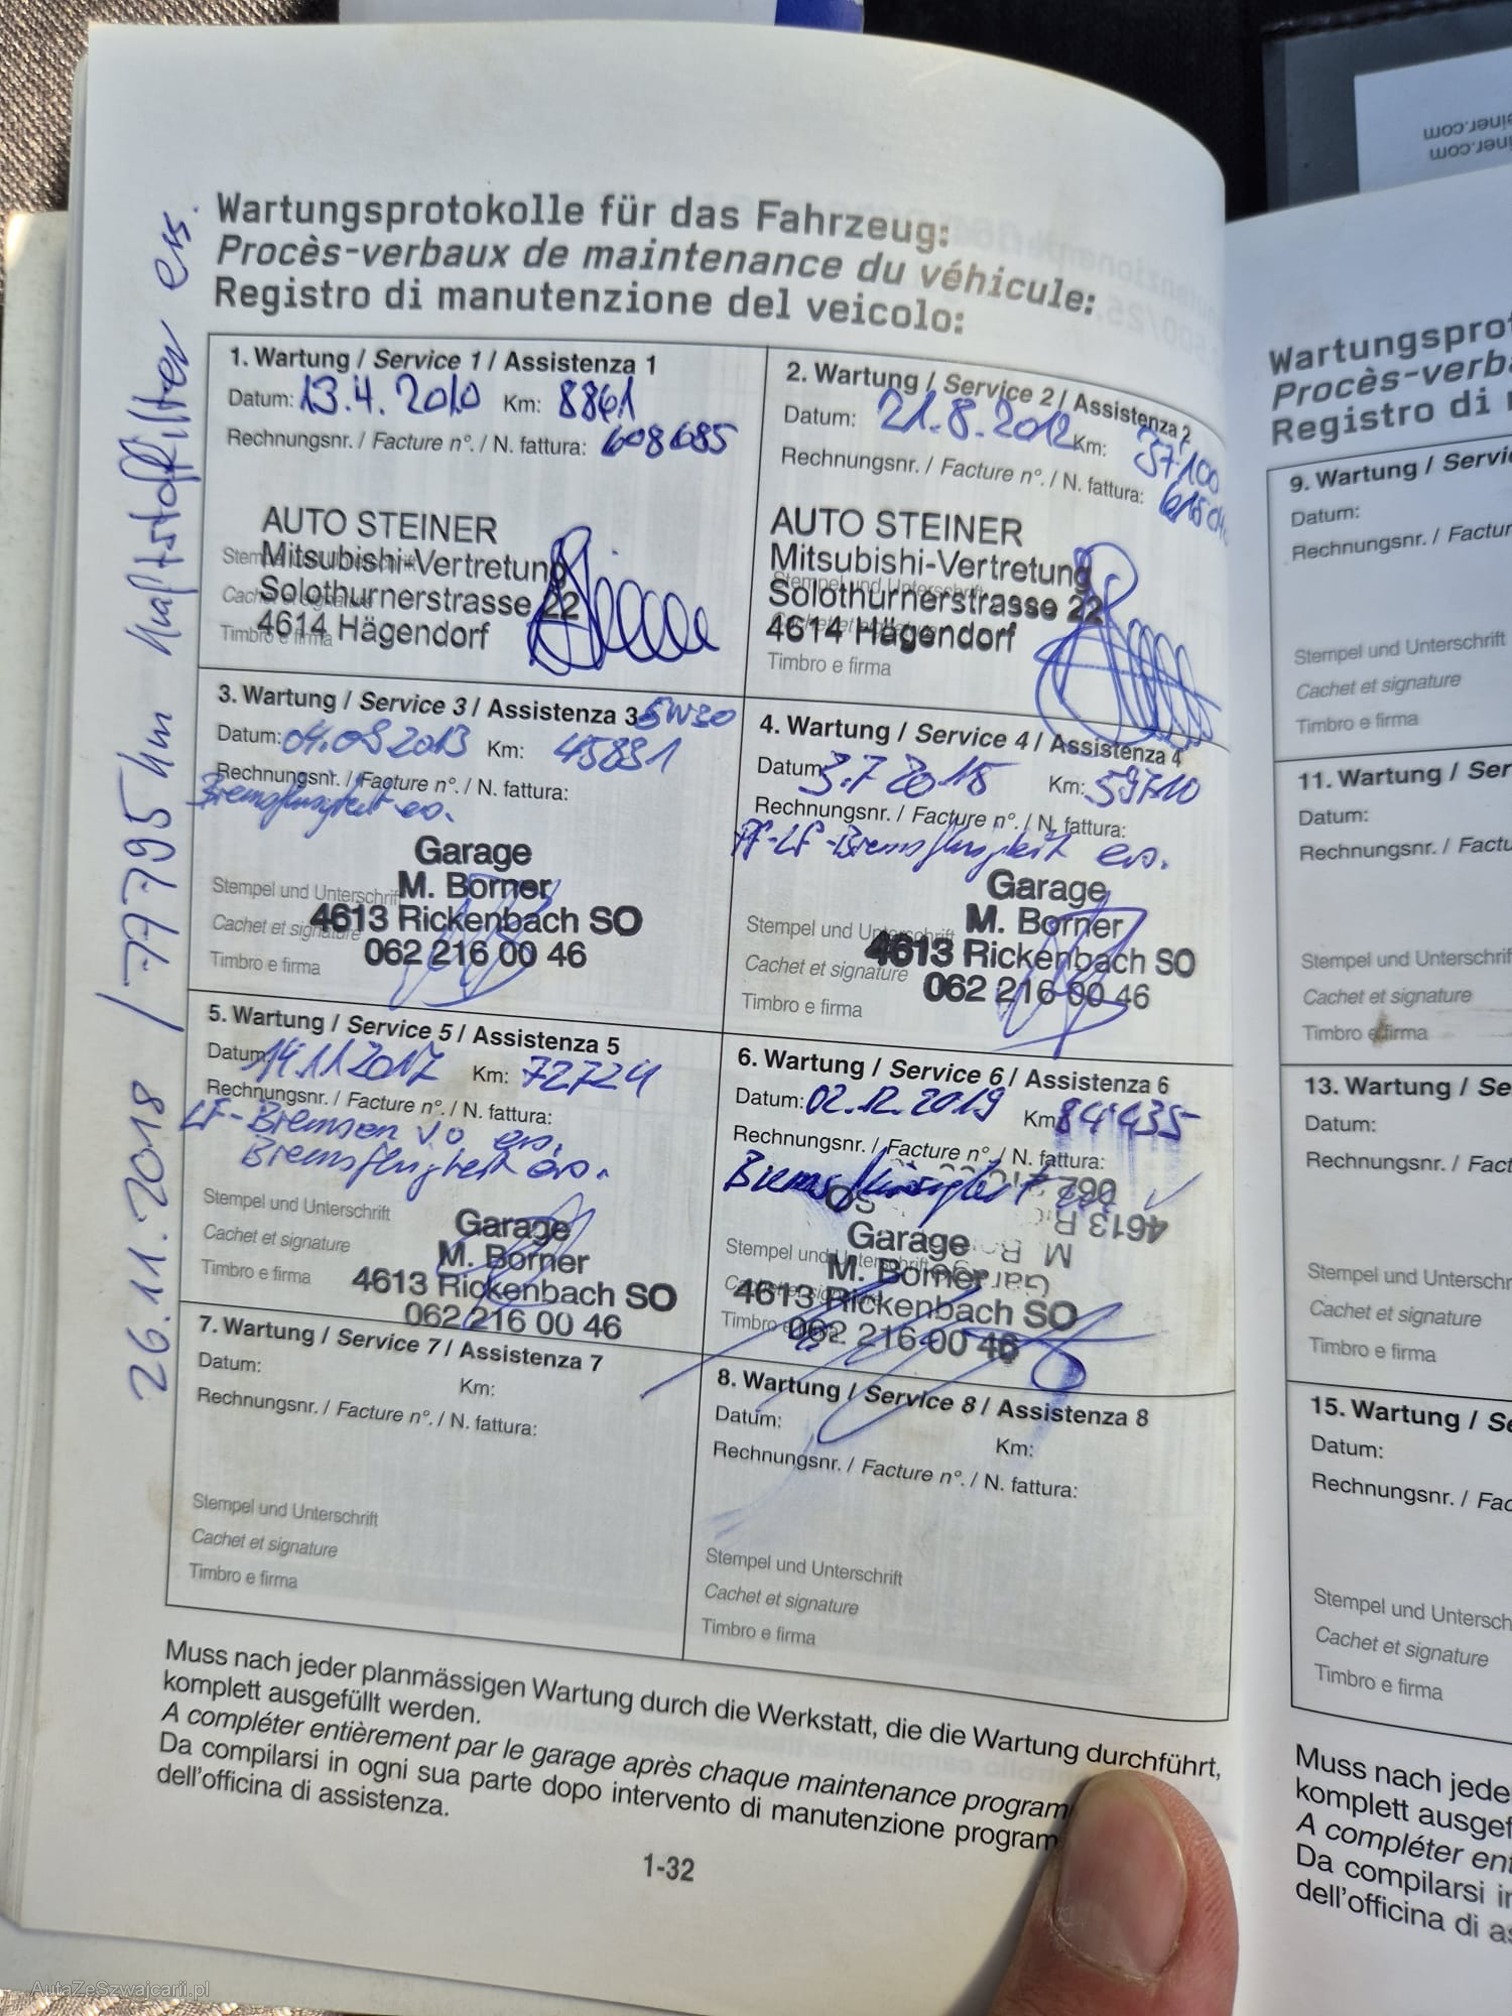 Wartungsprotokolle für das Fahrzeug:
Procès-verbaux de maintenance du véhicule:
Registro di manutenzione del veicolo:
26.11.2018 / 77795 km Kraftstoffilter ers.
1. Wartung / Service 1 / Assistenza 1
Datum: 13.4.2010 Km: 8861
Rechnungsnr. / Facture n°. / N. fattura: 608685
AUTO STEINER
Mitsubishi-Vertretung
Solothurnerstrasse 22
4614 Hägendorf
Timbro e firma
2. Wartung / Service 2 / Assistenza 2
Datum: 21.8.2012 Km: 37100
Rechnungsnr. / Facture n°. / N. fattura:
AUTO STEINER
Mitsubishi-Vertretung
Stempel und Unterschrift
Solothurnerstrasse 22
Cachet et signature
4614 Hägendorf
Timbro e firma
3. Wartung / Service 3 / Assistenza 3 5W30
Datum: 04.09 2013 Km: 45831
Rechnungsnr. / Facture n°. / N. fattura:
Bremsflüssigkeit ers.
Garage
Stempel und Unterschrift M. Borner
Cachet et signature 4613 Rickenbach SO
Timbro e firma 062 216 00 46
4. Wartung / Service 4 / Assistenza 4
Datum: 3.7 2015 Km: 59710
Rechnungsnr. / Facture n°. / N. fattura:
PF-LF-Bremsflüssigkeit ers.
Garage
Stempel und Unterschrift M. Borner
4613 Rickenbach SO
Cachet et signature 062 216 00 46
Timbro e firma
5. Wartung / Service 5 / Assistenza 5
Datum: 14.11 2017 Km: 72724
Rechnungsnr. / Facture n°. / N. fattura:
LF-Bremsen v.o ers.
Bremsflüssigkeit ers.
Stempel und Unterschrift Garage
Cachet et signature M. Borner
Timbro e firma 4613 Rickenbach SO
062 216 00 46
6. Wartung / Service 6 / Assistenza 6
Datum: 02.12.2019 Km: 84'435
Rechnungsnr. / Facture n°. / N. fattura:
Bremsflüssigkeit ✓
4613
Garage
Stempel und Unterschrift M. Borner
4613 Rickenbach SO
Timbro 062 216 00 46
7. Wartung / Service 7 / Assistenza 7
Datum: Km:
Rechnungsnr. / Facture n°. / N. fattura:
Stempel und Unterschrift
Cachet et signature
Timbro e firma
8. Wartung / Service 8 / Assistenza 8
Datum: Km:
Rechnungsnr. / Facture n°. / N. fattura:
Stempel und Unterschrift
Cachet et signature
Timbro e firma
Muss nach jeder planmässigen Wartung durch die Werkstatt, die die Wartung durchführt,
komplett ausgefüllt werden.
A compléter entièrement par le garage après chaque maintenance program
Da compilarsi in ogni sua parte dopo intervento di manutenzione program
dell'officina di assistenza.
1-32
Wartungsprot
Procès-verb
Registro di
9. Wartung / Servi
Datum:
Rechnungsnr. / Factur
Stempel und Unterschrift
Cachet et signature
Timbro e firma
11. Wartung / Ser
Datum:
Rechnungsnr. / Factu
Stempel und Unterschrif
Cachet et signature
Timbro e firma
13. Wartung / Se
Datum:
Rechnungsnr. / Fact
Stempel und Untersch
Cachet et signature
Timbro e firma
15. Wartung / Se
Datum:
Rechnungsnr. / Fac
Stempel und Untersch
Cachet et signature
Timbro e firma
Muss nach jede
komplett ausgef
A compléter ent
Da compilarsi in
dell'officina di as
AutaZeSzwajcarii.pl